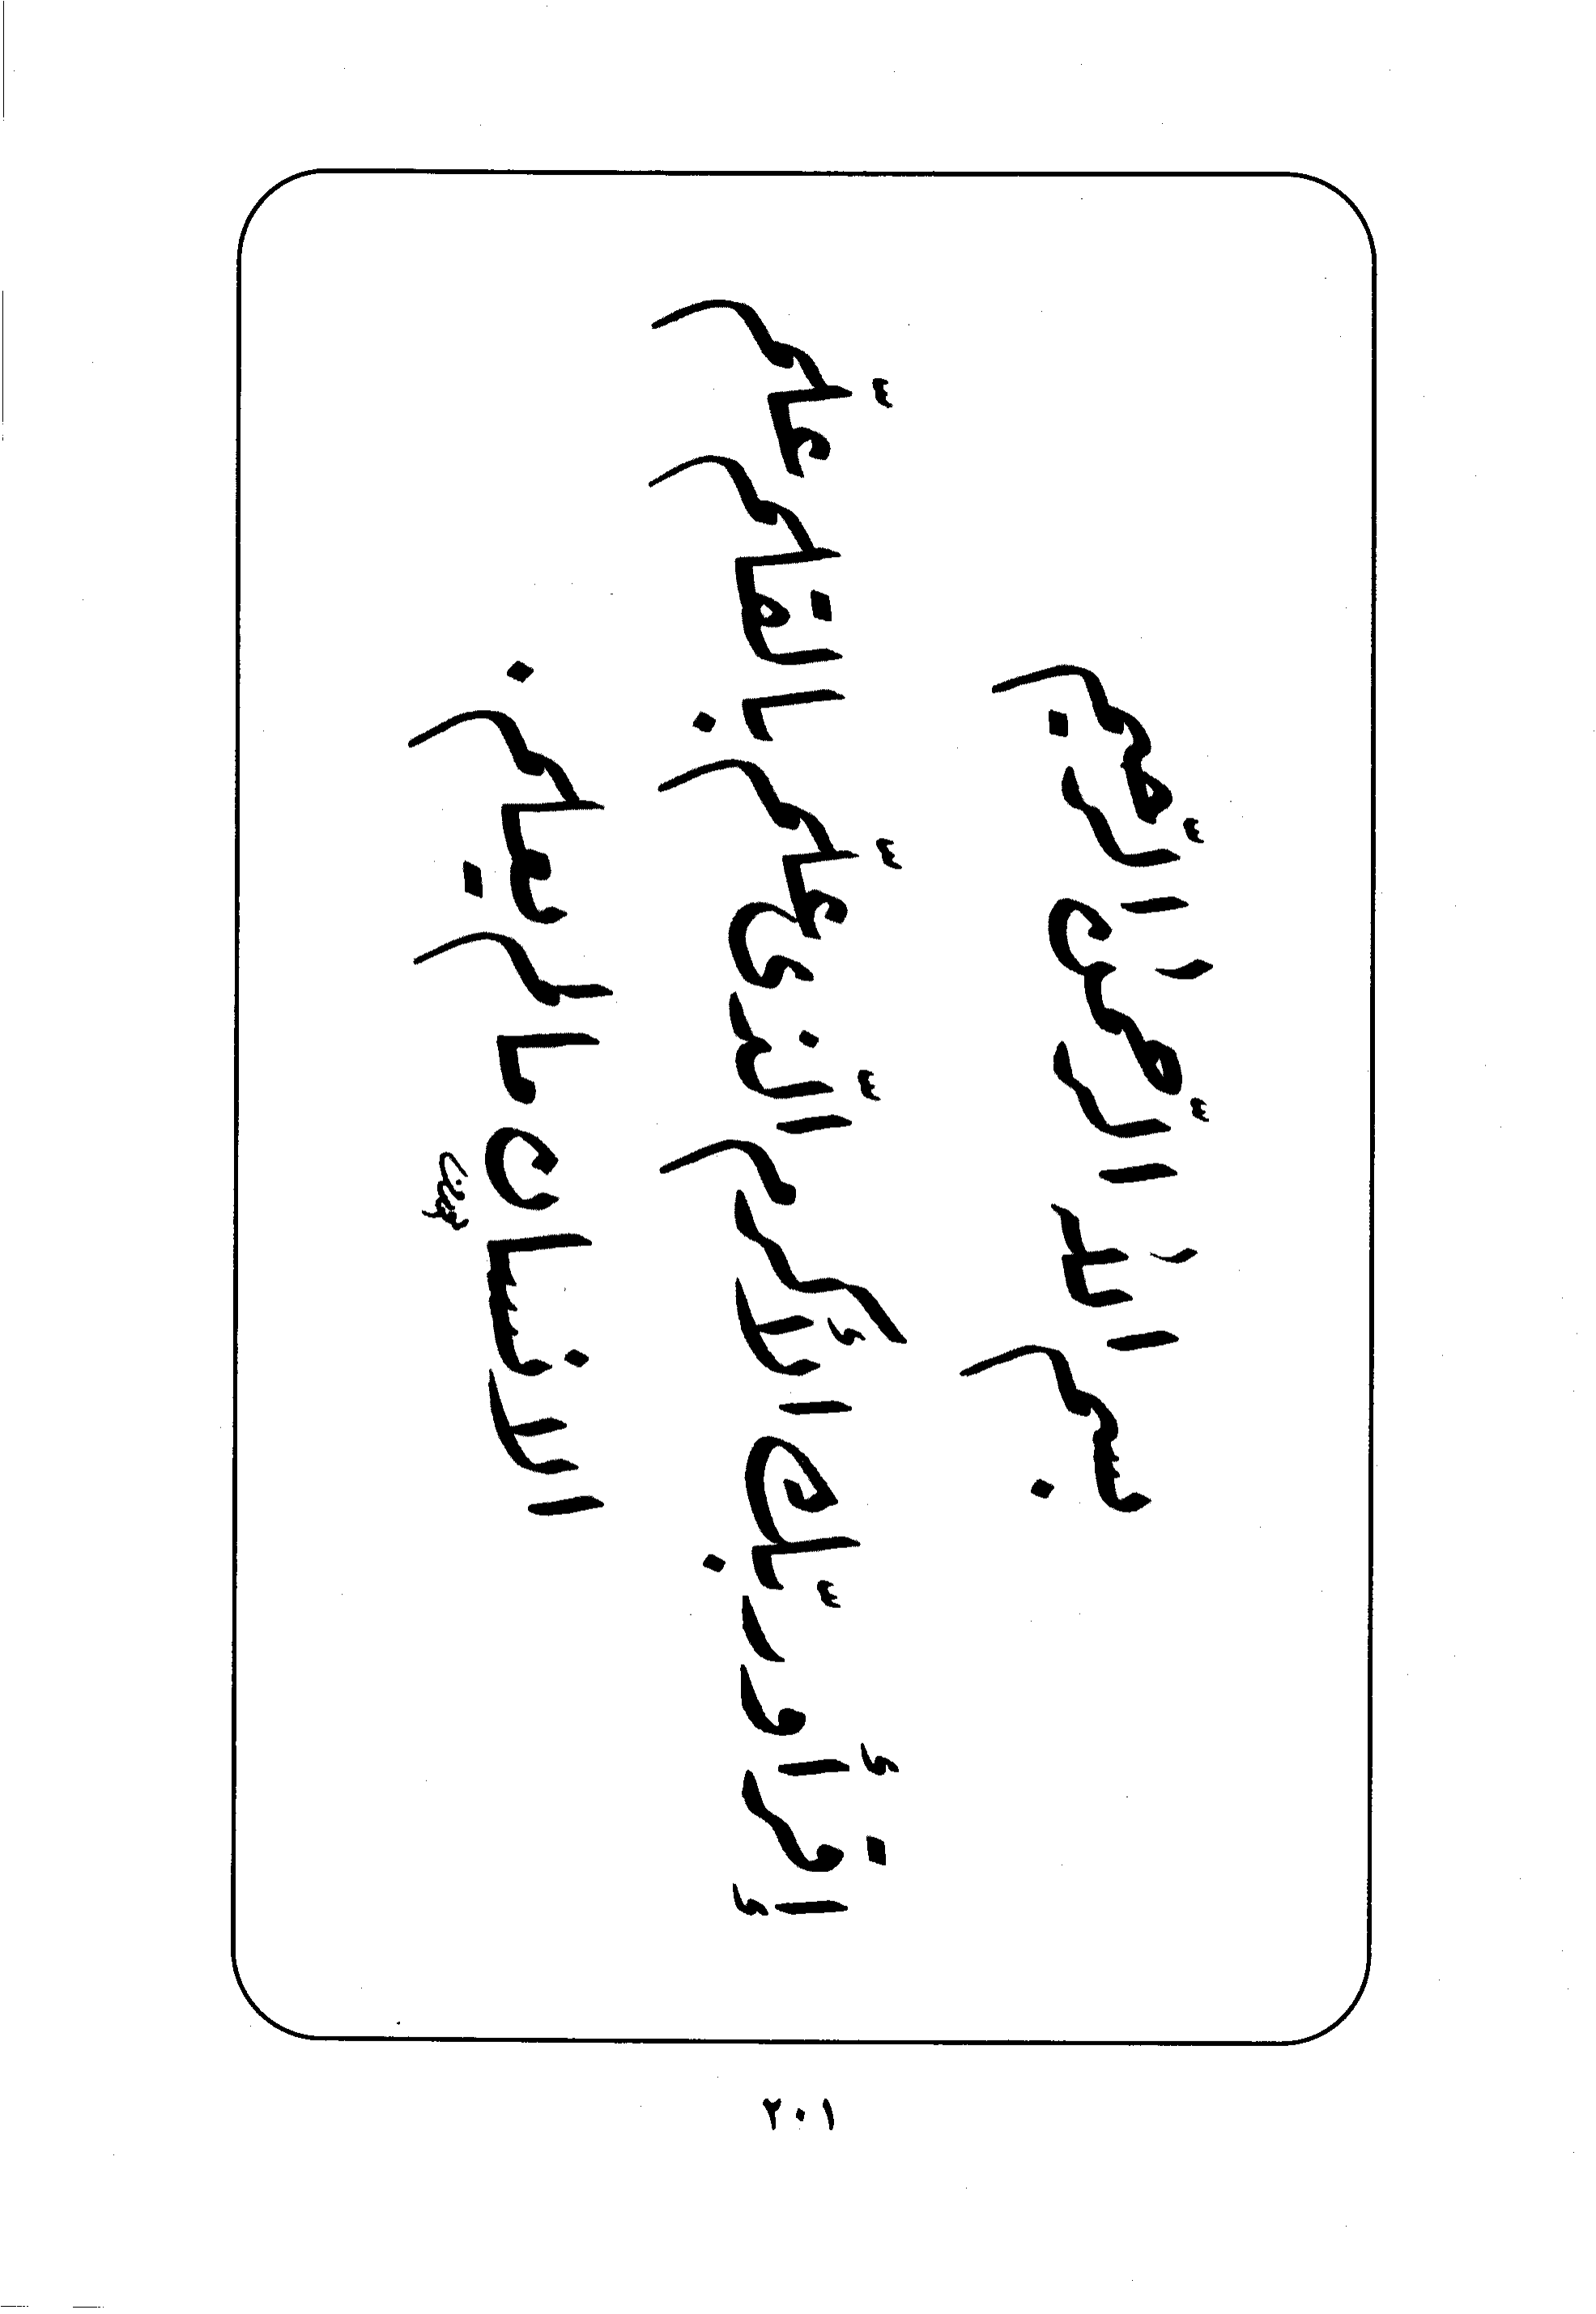 بسم اللّٰه الرّحمٰن الرّحيم
إقرأ وربّك الأكرم الّذى علّم بالقلم علّم
الانسان مالم يعلم
٢٠١